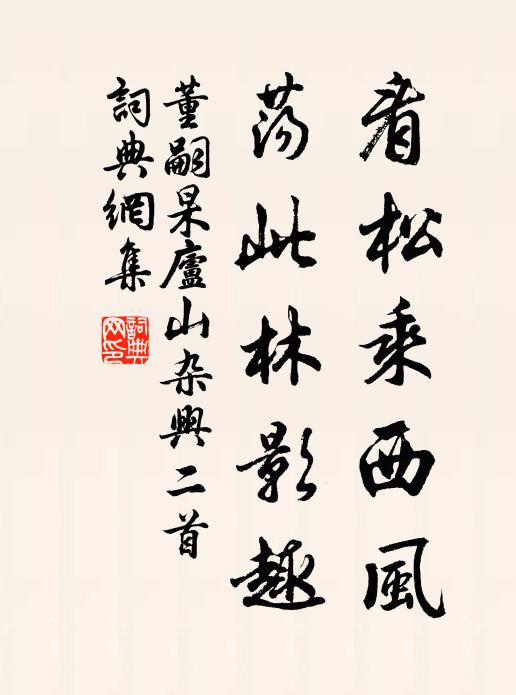 看松乘西風
蕩此林影趣
董嗣杲廬山杂興二首
詞典網集
詞典網印